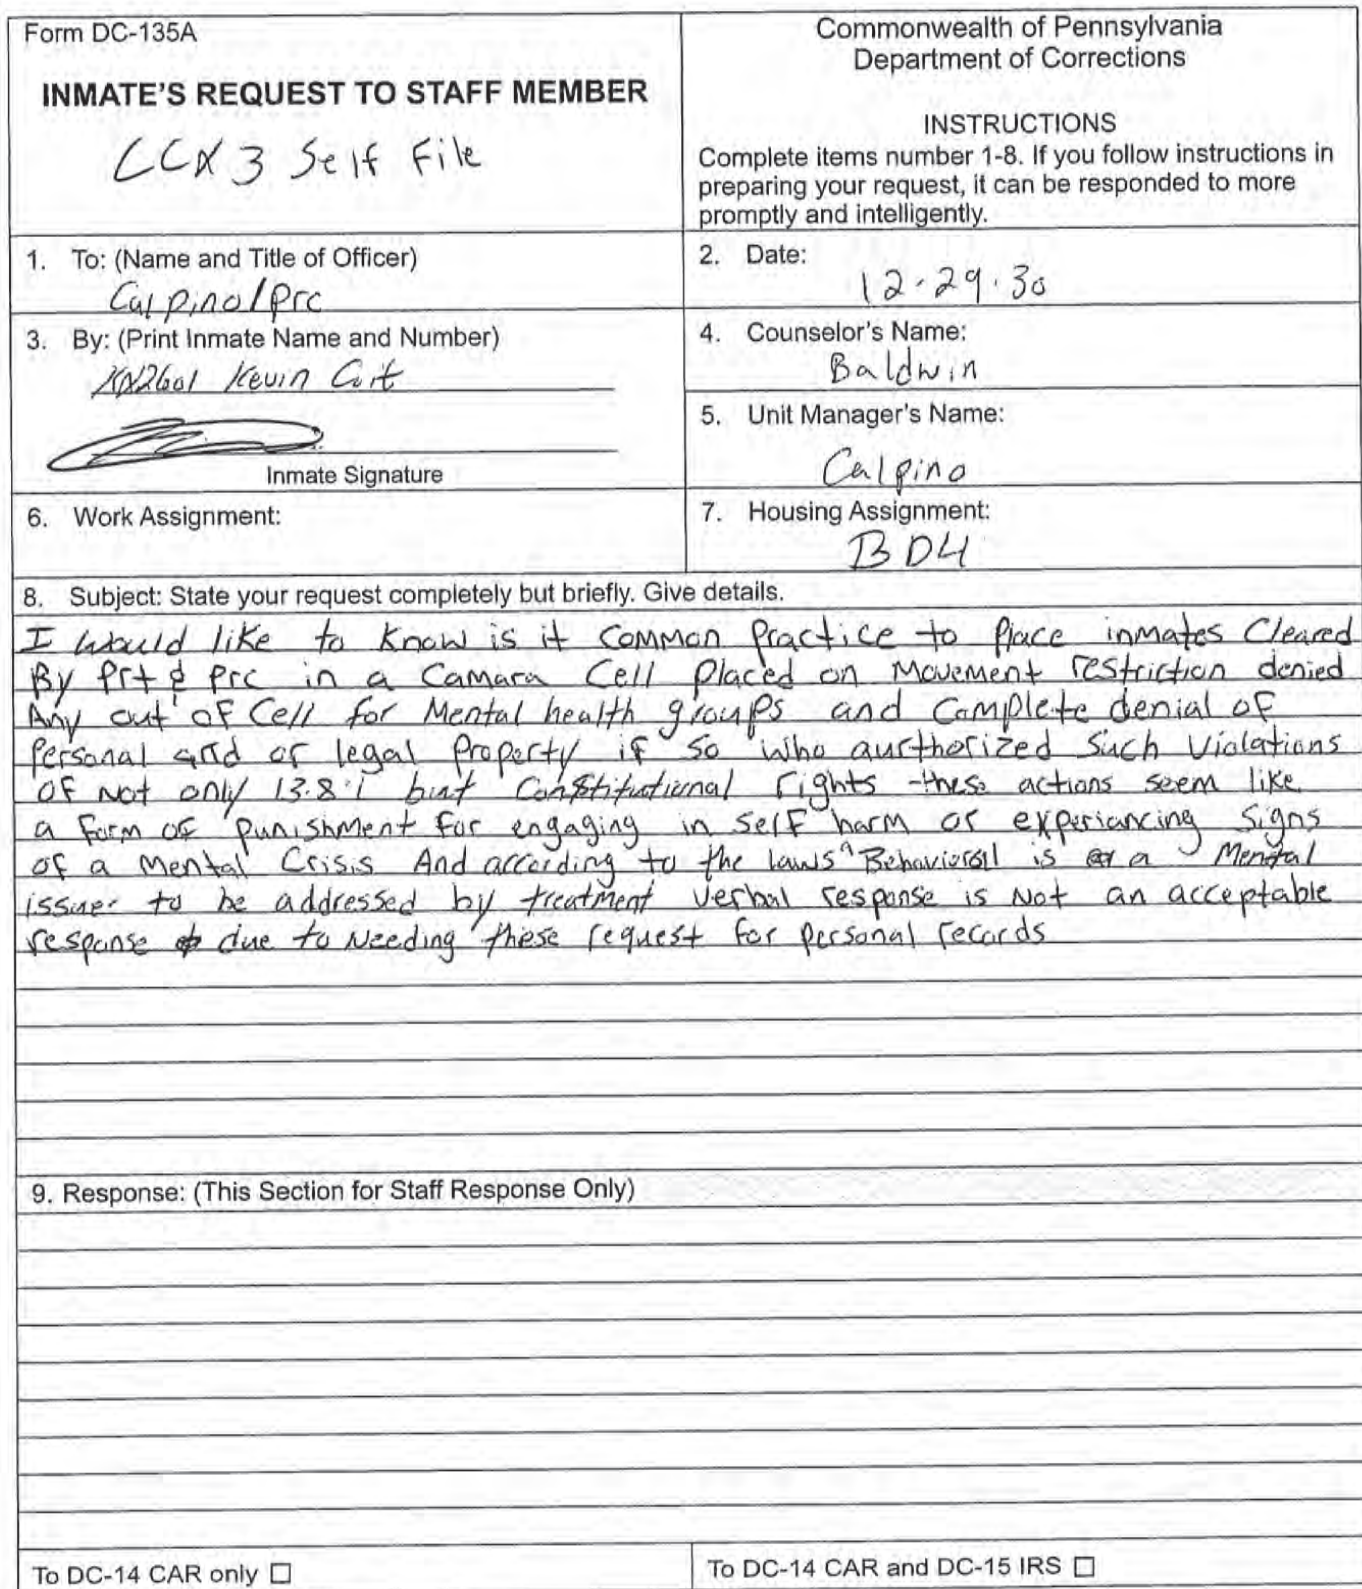 Form DC-135A
INMATE'S REQUEST TO STAFF MEMBER
CCX3 Self File
Commonwealth of Pennsylvania
Department of Corrections
INSTRUCTIONS
Complete items number 1-8. If you follow instructions in
preparing your request, it can be responded to more
promptly and intelligently.
1. To: (Name and Title of Officer)
Calpino/prc
2. Date:
12-29-30
3. By: (Print Inmate Name and Number)
Kevin
Inmate Signature
4. Counselor's Name:
Baldwin
5. Unit Manager's Name:
Calpino
6. Work Assignment:
7. Housing Assignment:
BD4
8. Subject: State your request completely but briefly. Give details.
I would like to know is it common practice to place inmates Cleared
By Prt & Prc in a Camara Cell placed on Movement restriction denied
Any out of Cell for Mental health groups and Complete denial of
Personal and or legal Property if so who aurthorized Such Violations
of Not only 13.8.1 but Constitutional rights these actions seem like
a form of punishment for engaging in self harm or experiancing Signs
of a Mental Crisis And according to the laws Behavioral is a Mental
issue to be addressed by treatment verbal response is Not an acceptable
response due to Needing these request for personal records
9. Response: (This Section for Staff Response Only)
To DC-14 CAR only ☐
To DC-14 CAR and DC-15 IRS ☐